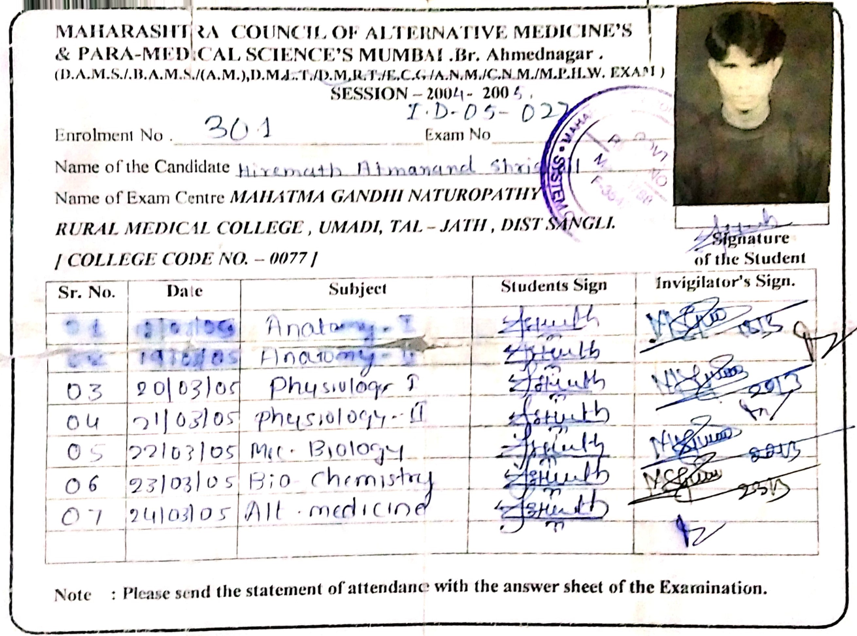 MAHARASHTRA COUNCIL OF ALTERNATIVE MEDICINE'S
& PARA-MEDICAL SCIENCE'S MUMBAI .Br. Ahmednagar .
(D.A.M.S./.B.A.M.S./(A.M.),D.M.L.T./D.M.R.T./E.C.G./A.N.M./C.N.M./M.P.H.W. EXAM )
SESSION – 2004 - 2005.
I.D-05-027
Enrolment No . 301 Exam No
Name of the Candidate Hiremath Atmanand
Name of Exam Centre MAHATMA GANDHI NATUROPATHY
RURAL MEDICAL COLLEGE , UMADI, TAL – JATH , DIST SANGLI.
[ COLLEGE CODE NO. – 0077 ]
Signature
of the Student
Sr. No. Date Subject Students Sign Invigilator's Sign.
01 Anatomy-I
Anatomy-II
03 20/03/05 Physiology I
04 21/03/05 Physiology-II
05 22/03/05 Mic. Biology
06 23/03/05 Bio Chemistry
07 24/03/05 Alt. medicine
Note : Please send the statement of attendance with the answer sheet of the Examination.